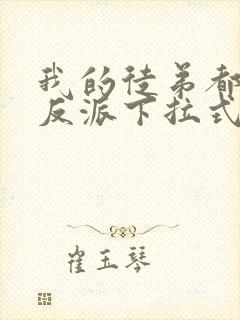 我的徒弟都
反派下拉式
崔玉琴